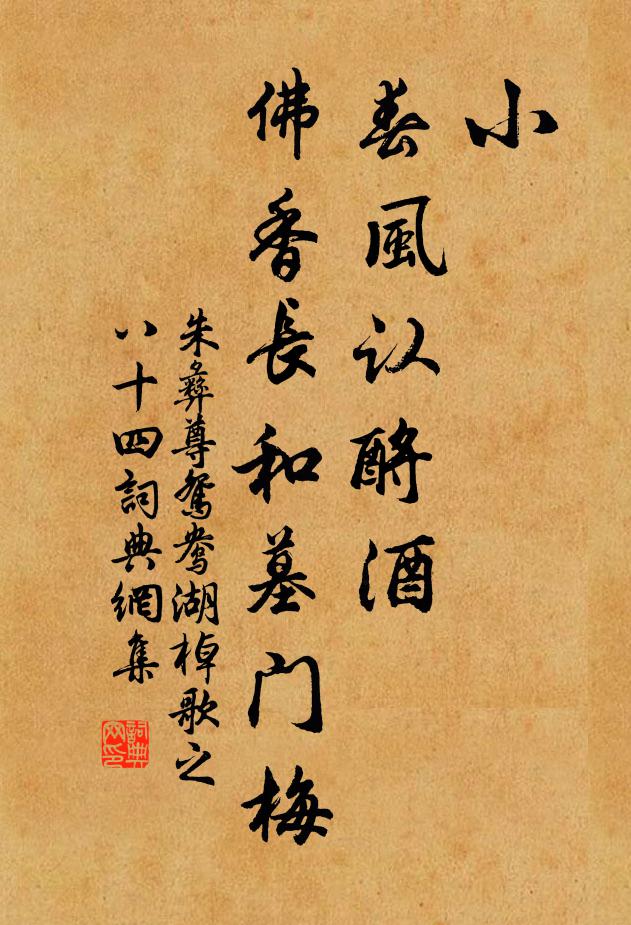 小
春風认酹酒
佛香長和墓門梅
朱彝尊鴛鴦湖棹歌之
八十四詞典網集
詞典
网印